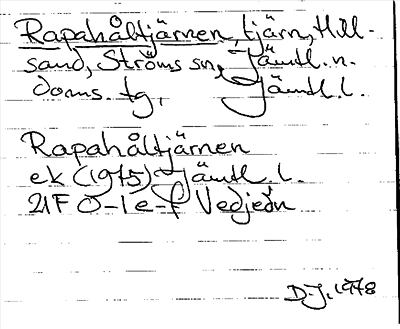 Rapahåltjärnen tjärn, Hill-
sand, Ströms sn, Jämtl. n.
doms. tg, Jämtl. l.
Rapahåltjärnen
ek (1975) Jämtl. l.
21F 0-1 e-f Vedjeön
D-J. 1978